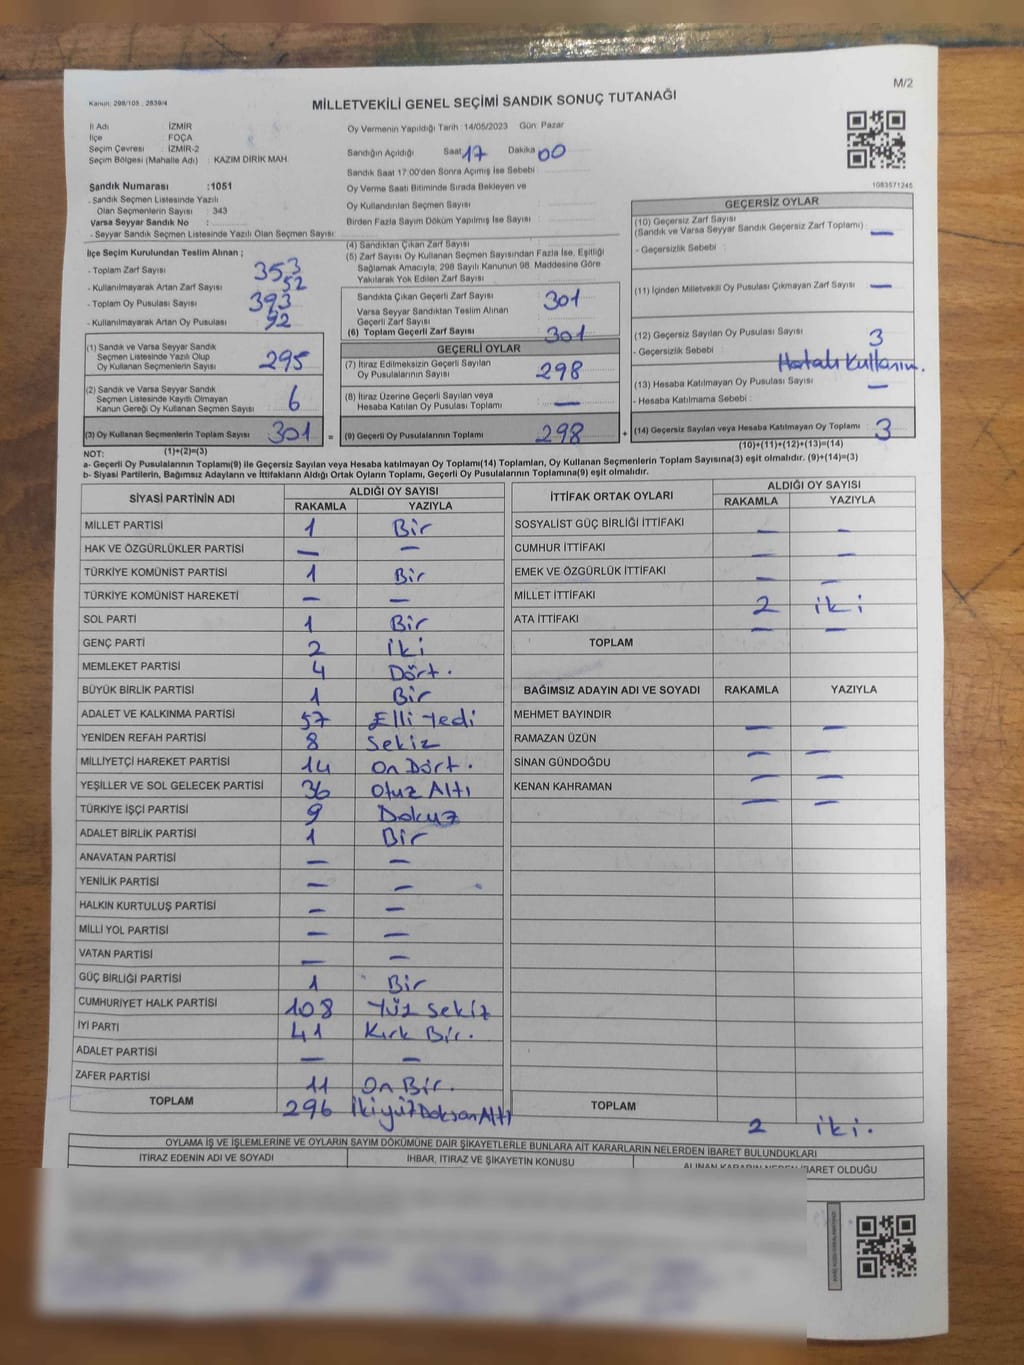 M/2
Kanun: 298/105 , 2839/4
MİLLETVEKİLİ GENEL SEÇİMİ SANDIK SONUÇ TUTANAĞI
İl Adı : İZMİR
İlçe : FOÇA
Seçim Çevresi : İZMİR-2
Seçim Bölgesi (Mahalle Adı) : KAZIM DİRİK MAH.
Sandık Numarası :1051
- Sandık Seçmen Listesinde Yazılı
Olan Seçmenlerin Sayısı : 343
Varsa Seyyar Sandık No :
- Seyyar Sandık Seçmen Listesinde Yazılı Olan Seçmen Sayısı:
Oy Vermenin Yapıldığı Tarih :14/05/2023 Gün: Pazar
Sandığın Açıldığı Saat 17 Dakika 00
Sandık Saat 17:00'den Sonra Açımış İse Sebebi :
Oy Verme Saati Bitiminde Sırada Bekleyen ve
Oy Kullandırılan Seçmen Sayısı :
Birden Fazla Sayım Döküm Yapılmış İse Sayısı :
1083571245
İlçe Seçim Kurulundan Teslim Alınan ;
- Toplam Zarf Sayısı : 353
- Kullanılmayarak Artan Zarf Sayısı : 52
- Toplam Oy Pusulası Sayısı : 393
- Kullanılmayarak Artan Oy Pusulası : 92
(1) Sandık ve Varsa Seyyar Sandık
Seçmen Listesinde Yazılı Olup
Oy Kullanan Seçmenlerin Sayısı : 295
(2) Sandık ve Varsa Seyyar Sandık
Seçmen Listesinde Kayıtlı Olmayan
Kanun Gereği Oy Kullanan Seçmen Sayısı : 6
(3) Oy Kullanan Seçmenlerin Toplam Sayısı : 301
(1)+(2)=(3)
(4) Sandıktan Çıkan Zarf Sayısı :
(5) Zarf Sayısı Oy Kullanan Seçmen Sayısından Fazla İse, Eşitliği
Sağlamak Amacıyla, 298 Sayılı Kanunun 98. Maddesine Göre
Yakılarak Yok Edilen Zarf Sayısı :
Sandıkta Çıkan Geçerli Zarf Sayısı : 301
Varsa Seyyar Sandıktan Teslim Alınan
Geçerli Zarf Sayısı :
(6) Toplam Geçerli Zarf Sayısı : 301
GEÇERLİ OYLAR
(7) İtiraz Edilmeksizin Geçerli Sayılan
Oy Pusulalarının Sayısı : 298
(8) İtiraz Üzerine Geçerli Sayılan veya
Hesaba Katılan Oy Pusulası Toplamı : —
= (9) Geçerli Oy Pusulalarının Toplamı : 298
GEÇERSİZ OYLAR
(10) Geçersiz Zarf Sayısı
(Sandık ve Varsa Seyyar Sandık Geçersiz Zarf Toplamı) : —
- Geçersizlik Sebebi :
(11) İçinden Milletvekili Oy Pusulası Çıkmayan Zarf Sayısı : —
(12) Geçersiz Sayılan Oy Pusulası Sayısı : 3
- Geçersizlik Sebebi : Hatalı Kullanım.
(13) Hesaba Katılmayan Oy Pusulası Sayısı : —
- Hesaba Katılmama Sebebi :
+ (14) Geçersiz Sayılan veya Hesaba Katılmayan Oy Toplamı : 3
(10)+(11)+(12)+(13)=(14)
NOT:
a- Geçerli Oy Pusulalarının Toplamı(9) ile Geçersiz Sayılan veya Hesaba katılmayan Oy Toplamı(14) Toplamları, Oy Kullanan Seçmenlerin Toplam Sayısına(3) eşit olmalıdır. (9)+(14)=(3)
b- Siyasi Partilerin, Bağımsız Adayların ve İttifakların Aldığı Oy Ortak Oyların Toplamı, Geçerli Oy Pusulalarının Toplamına(9) eşit olmalıdır.
SİYASİ PARTİNİN ADI ALDIĞI OY SAYISI
RAKAMLA YAZIYLA
MİLLET PARTİSİ 1 Bir
HAK VE ÖZGÜRLÜKLER PARTİSİ — —
TÜRKİYE KOMÜNİST PARTİSİ 1 Bir
TÜRKİYE KOMÜNİST HAREKETİ — —
SOL PARTİ 1 Bir
GENÇ PARTİ 2 iki
MEMLEKET PARTİSİ 4 Dört.
BÜYÜK BİRLİK PARTİSİ 1 Bir
ADALET VE KALKINMA PARTİSİ 57 Elli Yedi
YENİDEN REFAH PARTİSİ 8 Sekiz
MİLLİYETÇİ HAREKET PARTİSİ 14 On Dört.
YEŞİLLER VE SOL GELECEK PARTİSİ 36 Otuz Altı
TÜRKİYE İŞÇİ PARTİSİ 9 Dokuz
ADALET BİRLİK PARTİSİ 1 Bir
ANAVATAN PARTİSİ — —
YENİLİK PARTİSİ — —
HALKIN KURTULUŞ PARTİSİ — —
MİLLİ YOL PARTİSİ — —
VATAN PARTİSİ — —
GÜÇ BİRLİĞİ PARTİSİ 1 Bir
CUMHURİYET HALK PARTİSİ 108 Yüz Sekiz
İYİ PARTİ 41 Kırk Bir.
ADALET PARTİSİ — —
ZAFER PARTİSİ 11 On Bir.
TOPLAM 296 ikiyüz Doksan Altı
İTTİFAK ORTAK OYLARI ALDIĞI OY SAYISI
RAKAMLA YAZIYLA
SOSYALİST GÜÇ BİRLİĞİ İTTİFAKI — —
CUMHUR İTTİFAKI — —
EMEK VE ÖZGÜRLÜK İTTİFAKI — —
MİLLET İTTİFAKI 2 iki
ATA İTTİFAKI — —
TOPLAM
BAĞIMSIZ ADAYIN ADI VE SOYADI RAKAMLA YAZIYLA
MEHMET BAYINDIR — —
RAMAZAN ÜZÜN — —
SİNAN GÜNDOĞDU — —
KENAN KAHRAMAN — —
TOPLAM 2 iki.
OYLAMA İŞ VE İŞLEMLERİNE VE OYLARIN SAYIM DÖKÜMÜNE DAİR ŞİKAYETLERLE BUNLARA AİT KARARLARIN NELERDEN İBARET BULUNDUKLARI
İTİRAZ EDENİN ADI VE SOYADI İHBAR, İTİRAZ VE ŞİKAYETİN KONUSU ALINAN KARARIN NEDEN İBARET OLDUĞU